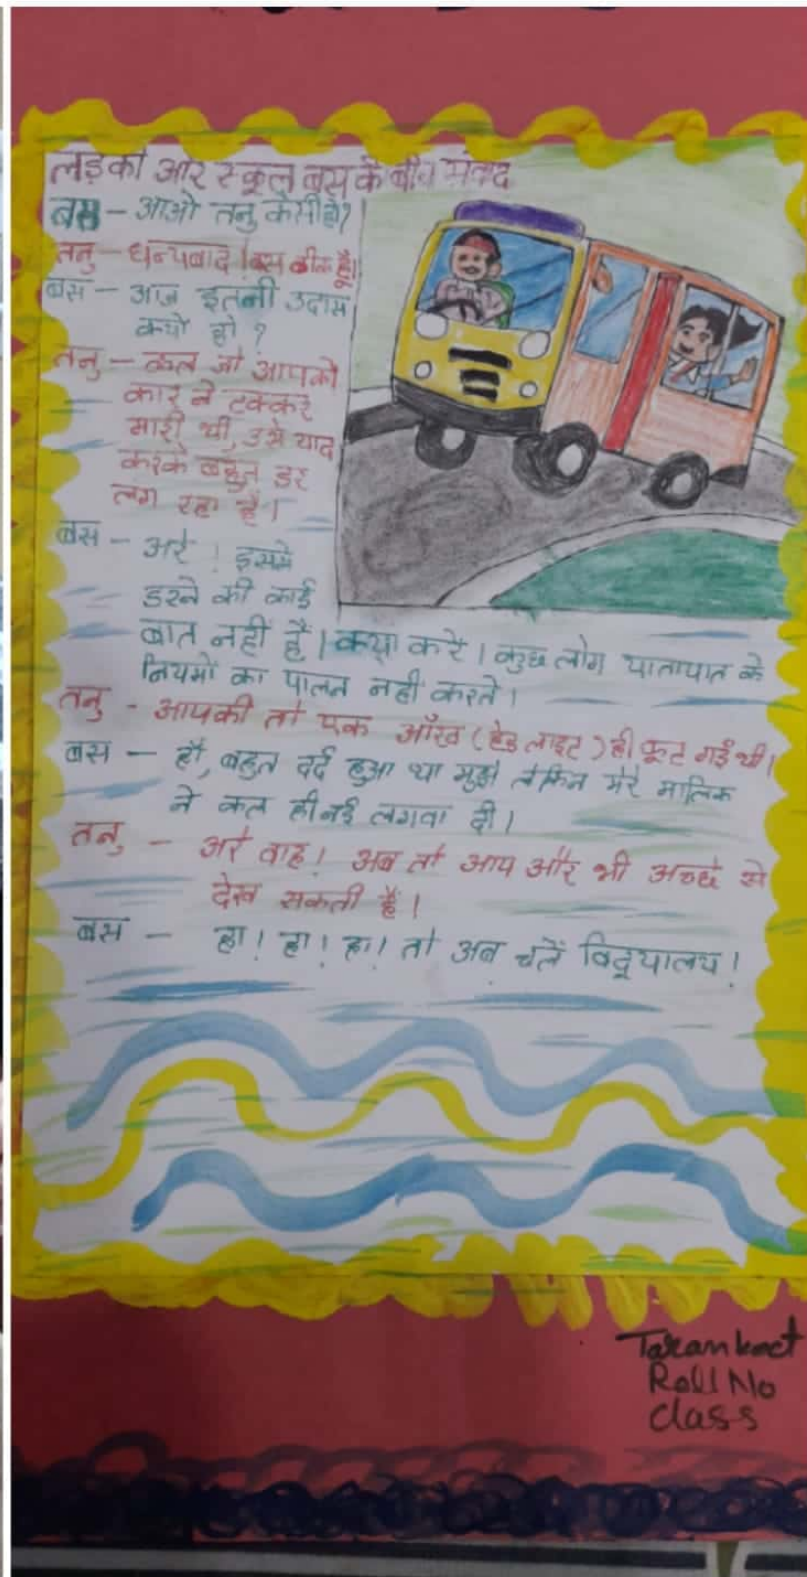 लड़की और स्कूल बस के बीच संवाद
बस - आओ तनु कैसी हो?
तनु - धन्यवाद! बस ठीक हूँ।
बस - आज इतनी उदास
क्यों हो ?
तनु - कल जो आपको
कार ने टक्कर
मारी थी, उसे याद
करके बहुत डर
लग रहा है।
बस - अरे ! इसमें
डरने की कोई
बात नहीं है। क्या करें। कुछ लोग यातायात के
नियमों का पालन नहीं करते।
तनु - आपकी तो एक आँख (हेड लाइट) ही फूट गई थी।
बस - हाँ, बहुत दर्द हुआ था मुझे लेकिन मेरे मालिक
ने कल ही नई लगवा दी।
तनु - अरे वाह! अब तो आप और भी अच्छे से
देख सकती हैं।
बस - हा! हा! हा! तो अब चलें विद्यालय!
Roll No
class